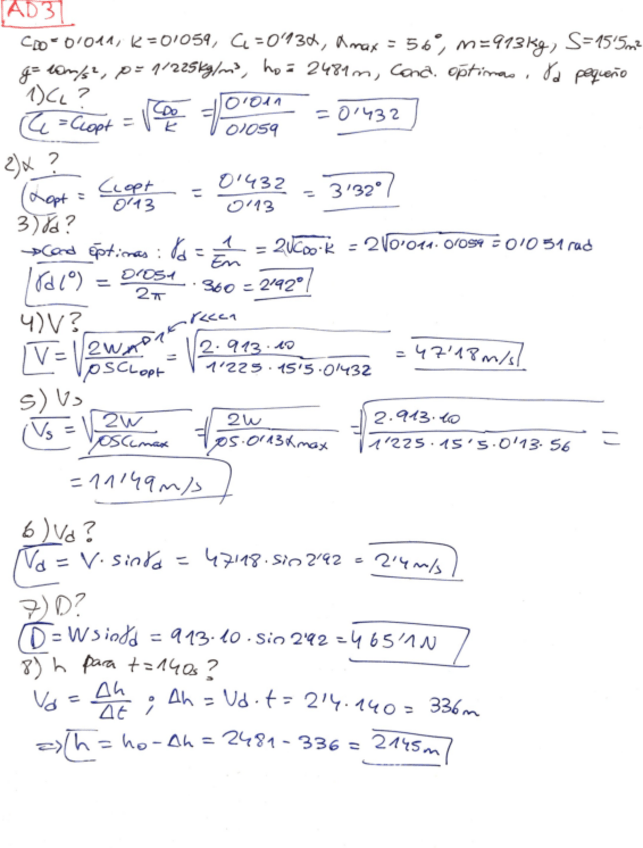 AD3
C_D0 = 0'011, K = 0'059, C_L = 0'13α, α_max = 56°, m = 913kg, S = 15'5m²
g = 10m/s², ρ = 1'225kg/m³, h_0 = 2481m, Cond. óptimas, γ_d pequeño
1) C_L ?
C_L = C_Lopt = √(C_D0/K) = √(0'011/0'059) = 0'432
2) α ?
α_opt = C_Lopt/0'13 = 0'432/0'13 = 3'32°
3) γ_d ?
→ Cond óptimas : γ_d = 1/E_m = 2√(C_D0·K) = 2√(0'011·0'059) = 0'051 rad
γ_d(°) = 0'051/2π · 360 = 2'92°
4) V ? γ<<<1
V = √(2Wn^(→1)/ρSC_Lopt) = √(2·913·10/1'225·15'5·0'432) = 47'18m/s
5) V_s
V_s = √(2W/ρSC_Lmax) = √(2W/ρS·0'13α_max) = √(2·913·10/1'225·15'5·0'13·56) =
= 11'49m/s
6) V_d ?
V_d = V·sinγ_d = 47'18·sin2'92 = 2'4m/s
7) D ?
D = W sinγ_d = 913·10·sin2'92 = 465'1N
8) h para t = 140s ?
V_d = Δh/Δt ; Δh = V_d·t = 2'4·140 = 336m
⇒ h = h_0 - Δh = 2481 - 336 = 2145m